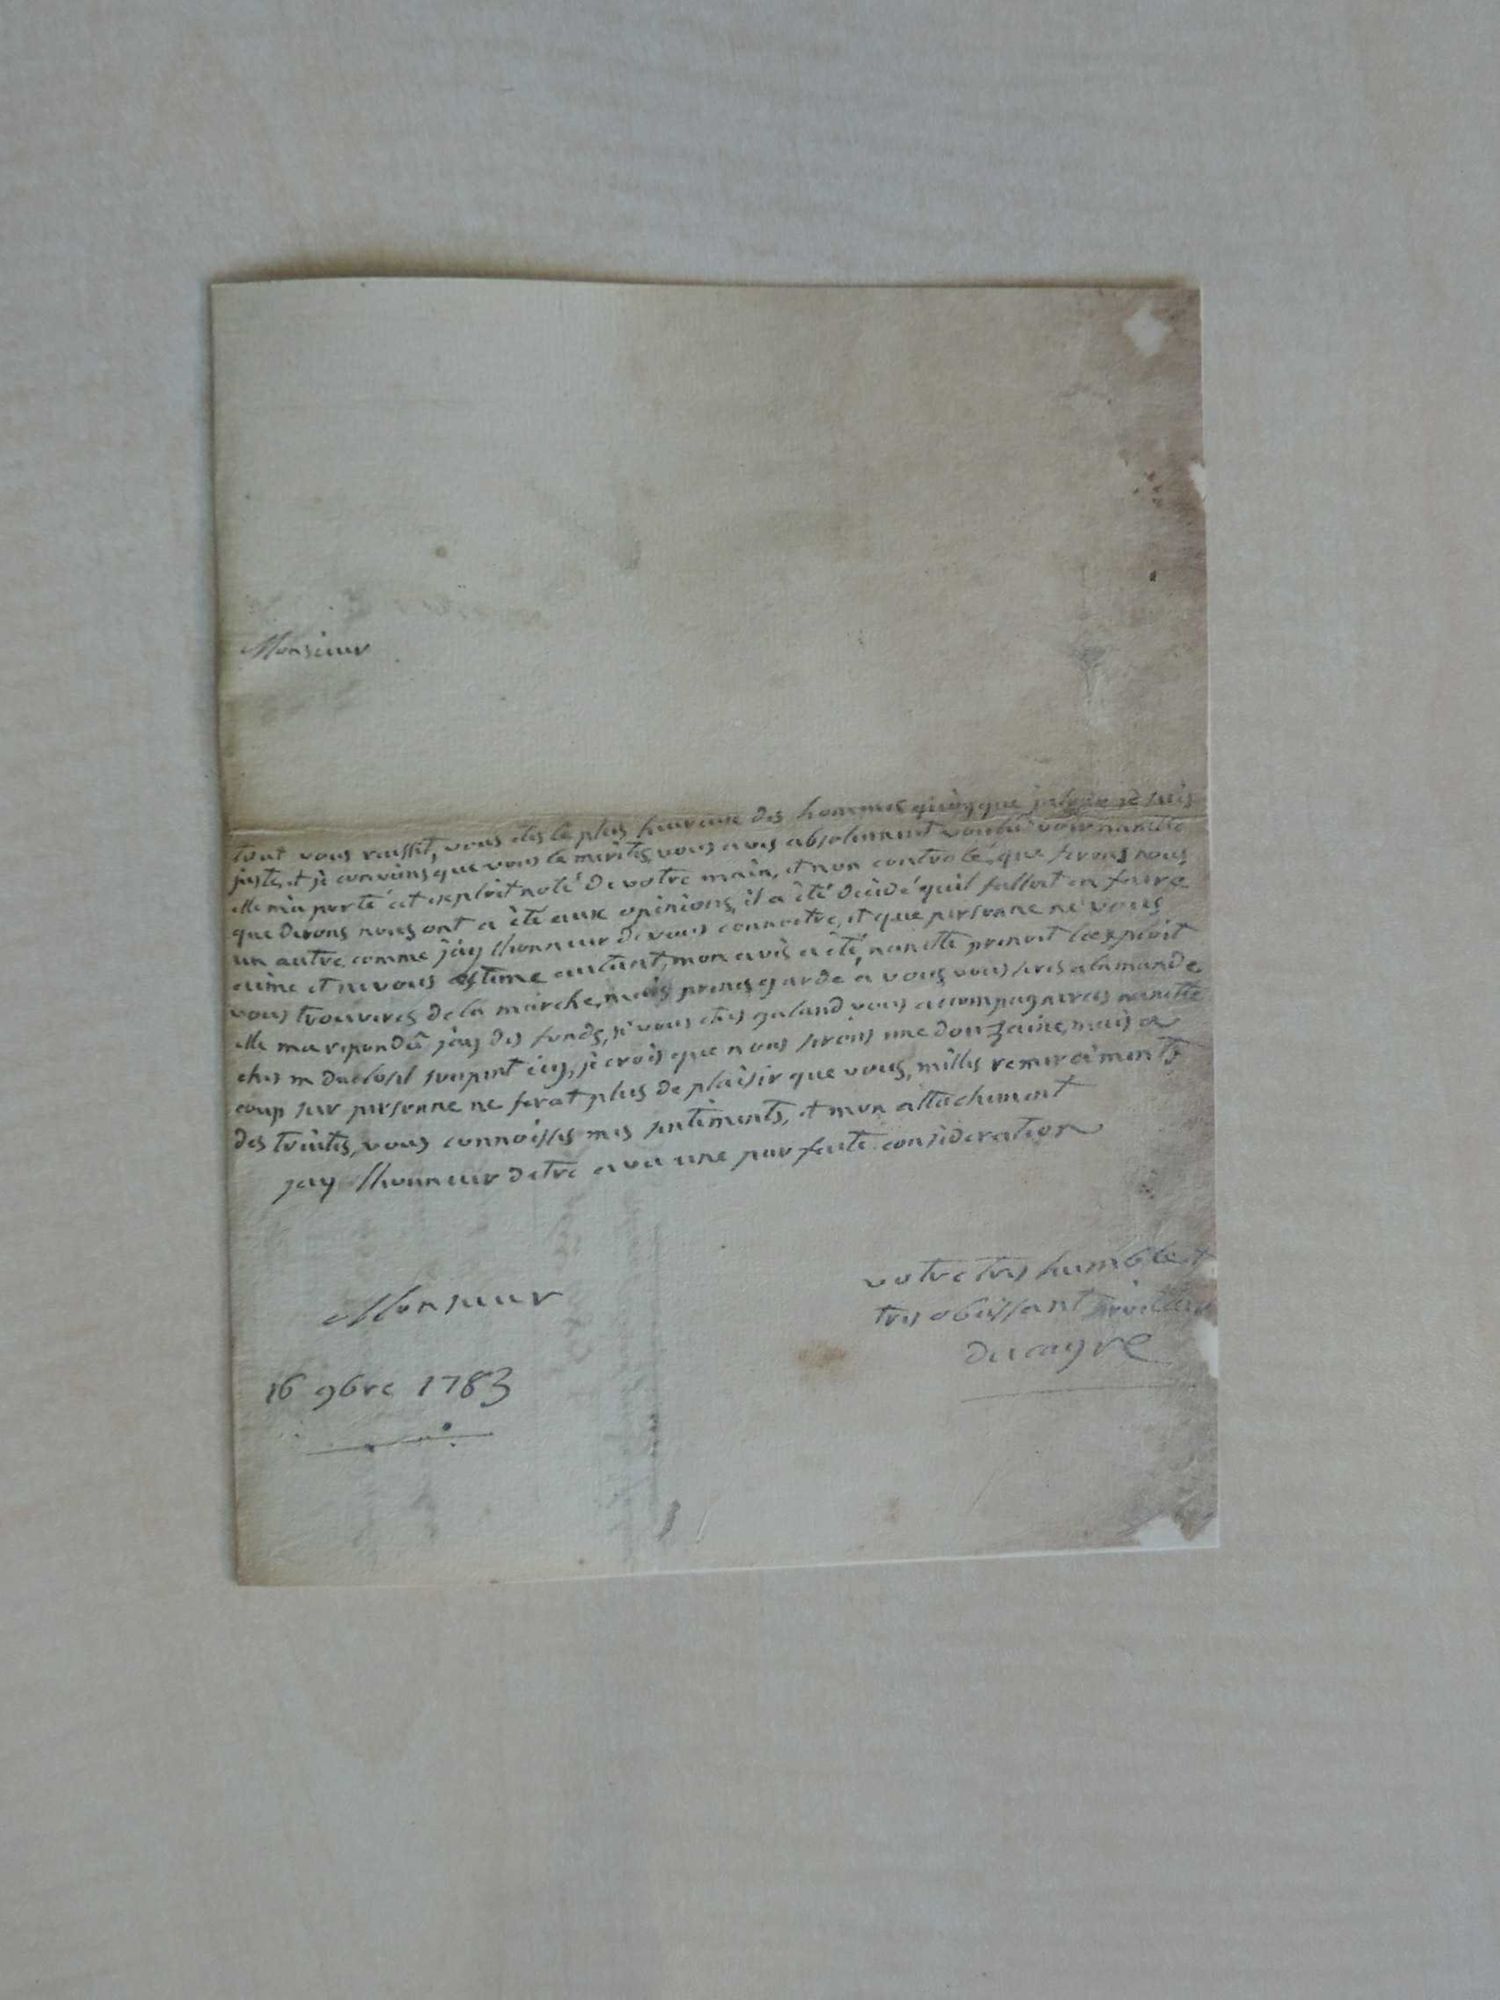 Monsieur
tout vous reussit, vous etes le plus heureux des hommes quoyque jaloux je suis
juste, et je conviens que vous le merités, vous avés absolument voulu voir nanette
elle m'a porté cet exploit noté de votre main, et non controlé, que ferons nous
que dirons nous ont a été aux opinions, il a été décidé quil falloit en faire
un autre. comme j'ay lhonneur de vous connoitre, et que personne ne vous
aime et ne vous estime autant, mon avis a été, nanette prenoit l'exploit
vous trouverés de la marche, mais prenés garde a vous vous serés a lamande
elle ma repondû j'ay des fonds, si vous etes galand vous acompagnerés nanette
ches m duclosil soupent icy, je crois que nous serons une douzaine, mais a
coup sur personne ne ferat plus de plaisir que vous, milles remerciments
des truites, vous connoissés mes sentiments, et mon attachement
jay lhonneur detre avec une parfaite consideration
Monsieur
votre tres humble et
tres obeissant serviteur
ducayre
16 9bre 1783